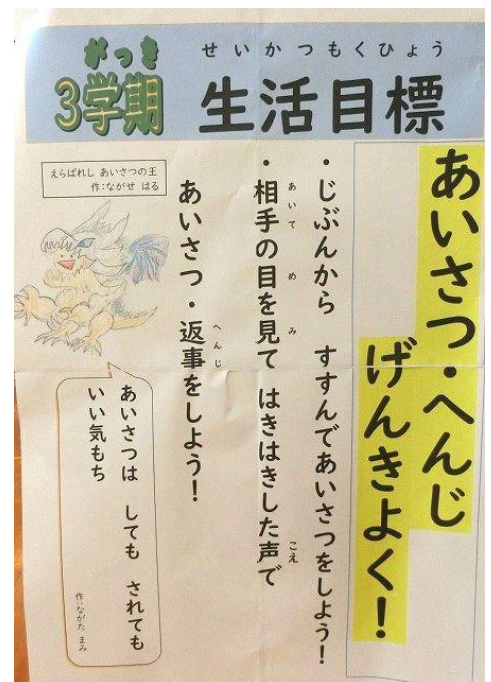 がっき
3学期
せいかつもくひょう
生活目標
あいさつ・へんじ
げんきよく!
・じぶんから すすんであいさつをしよう!
あいて め み こえ
・相手の目を見て はきはきした声で
へんじ
あいさつ・返事をしよう!
えらばれし あいさつの王
作:ながせ はる
あいさつは しても されても
いい気もち
作:ながた まみ